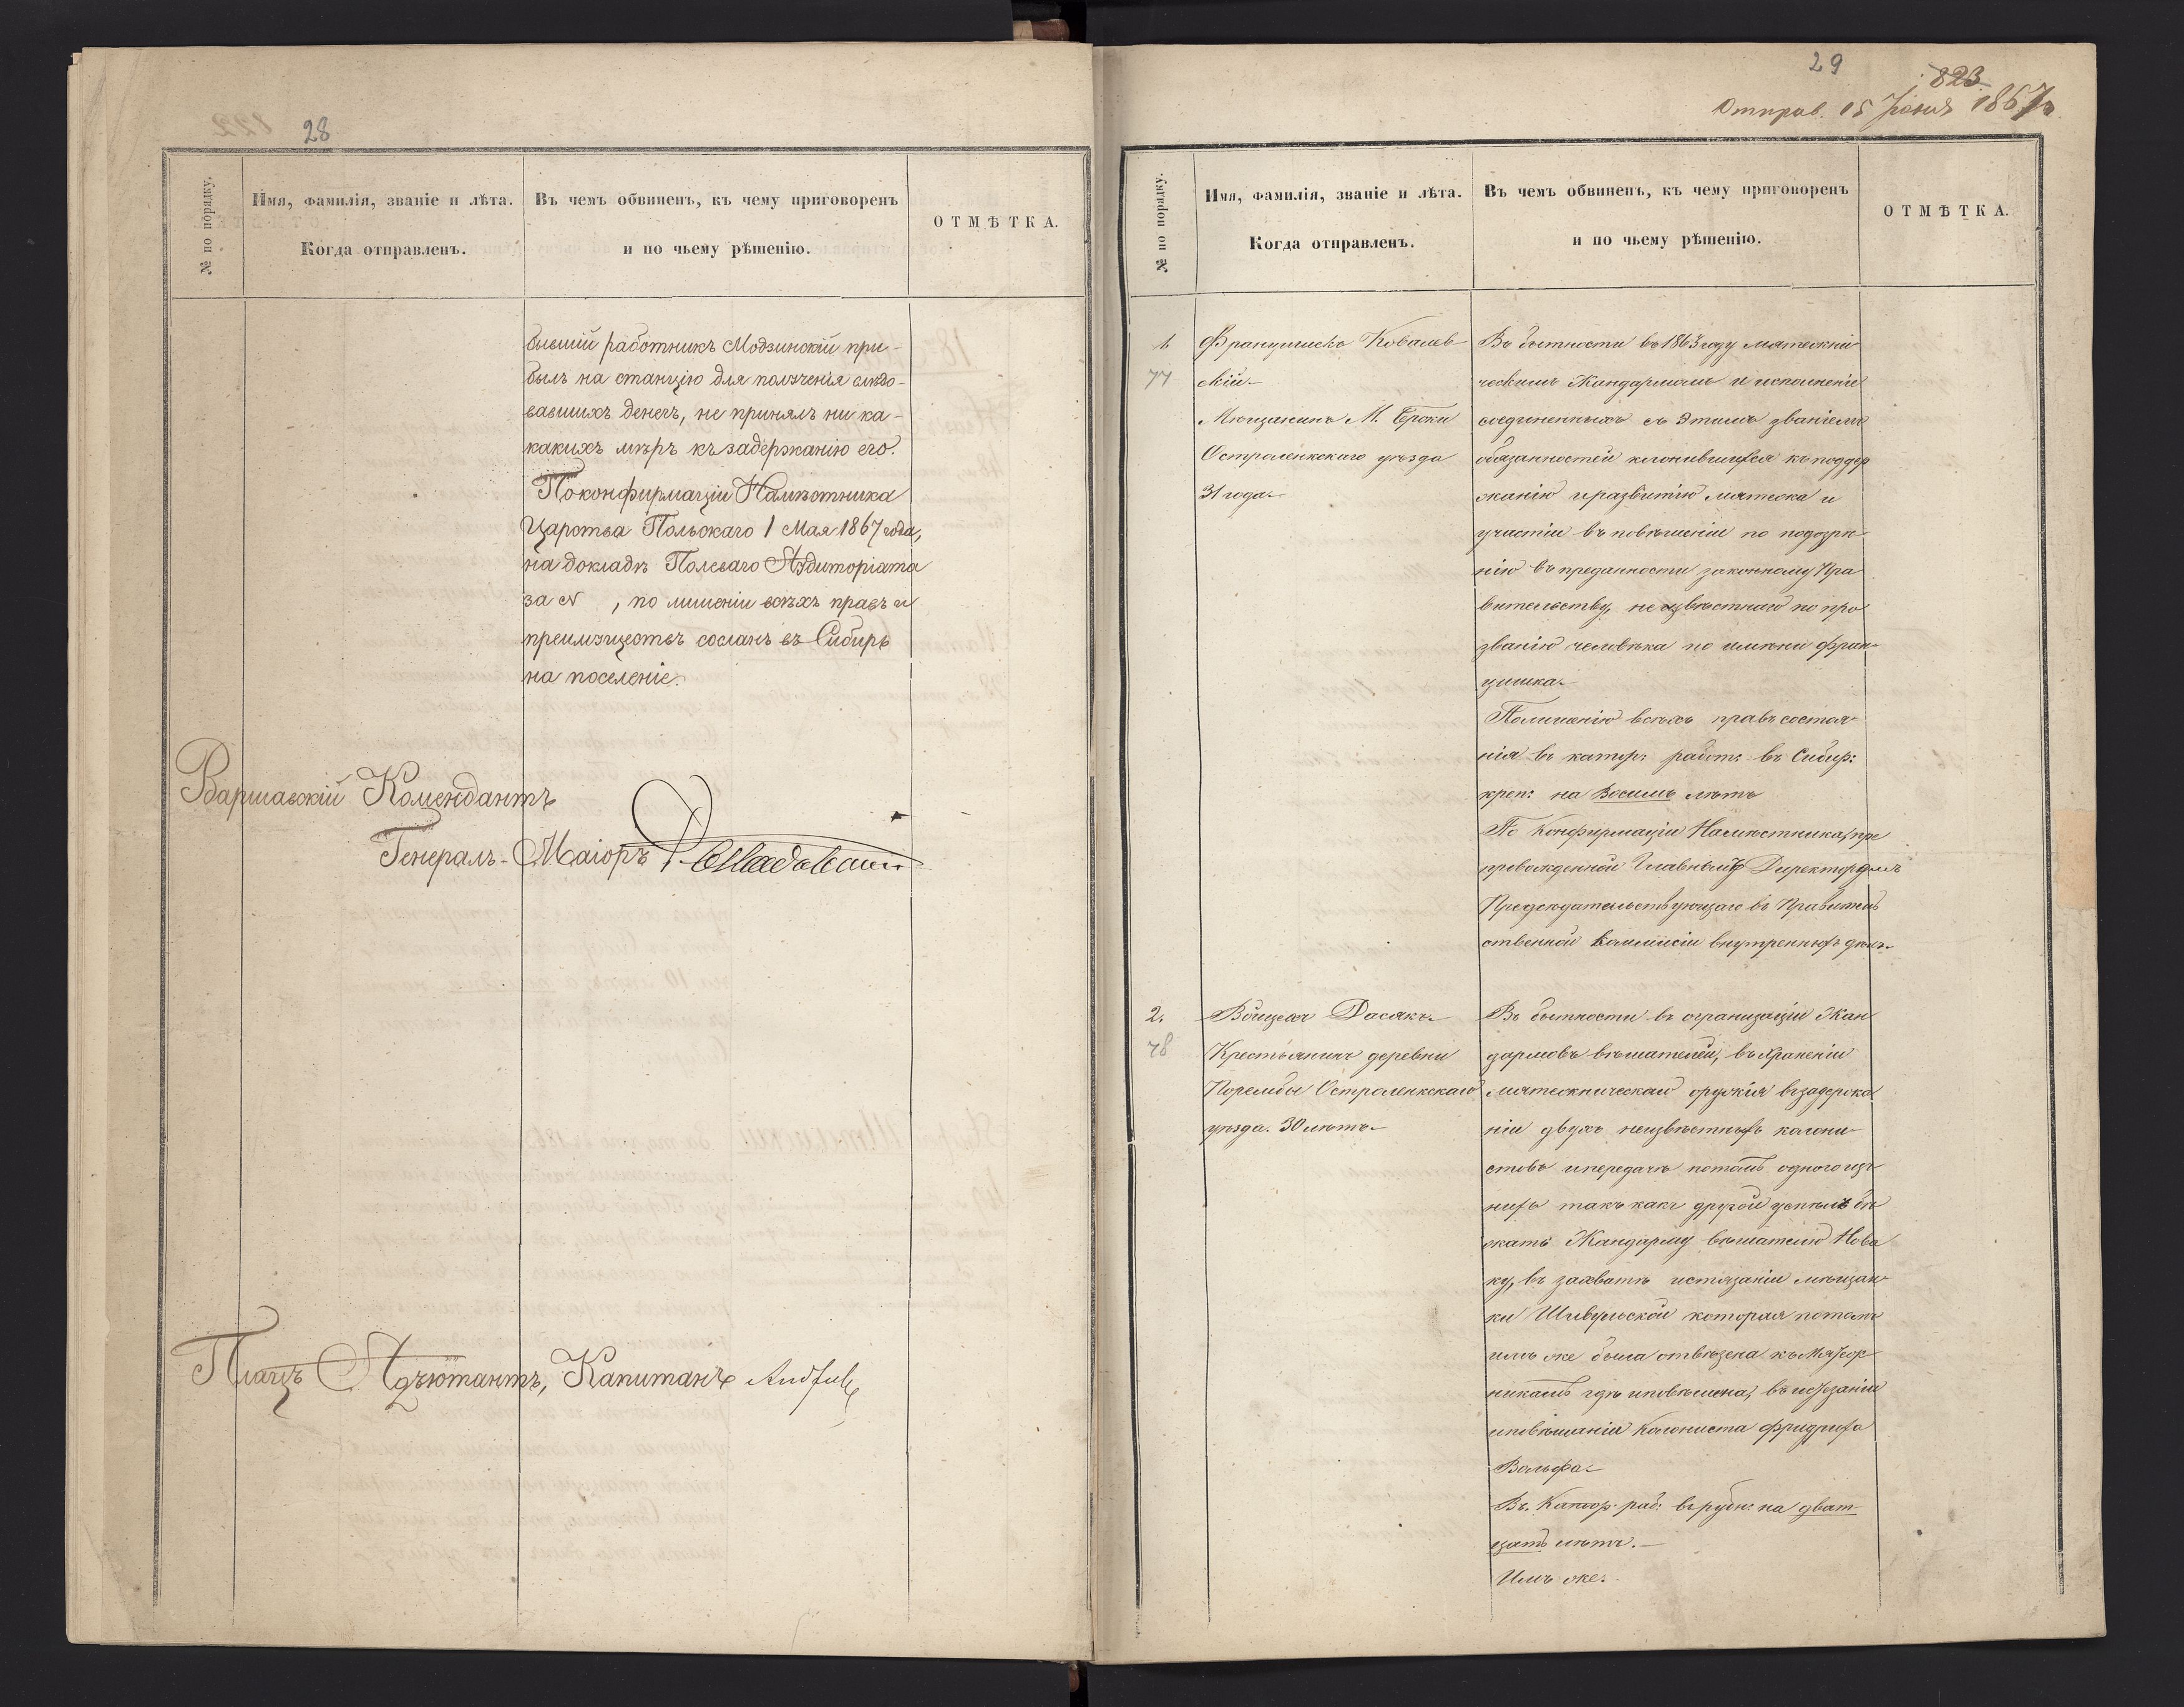 28
№ по порядку.
Имя, фамилія, званіе и лѣта.
Когда отправленъ.
Въ чемъ обвиненъ, къ чему приговоренъ
и по чьему рѣшенію.
ОТМѢТКА.
бывшій работникъ Модзинскій при-
былъ на станцію для полученія слѣдо-
вавшихъ денегъ, не принялъ ни ка-
какихъ мѣръ къ задержанію его.
По конфирмаціи Намѣстника
Царства Польскаго 1 Мая 1867 года,
на докладѣ Полеваго Аудиторіата
за N , по лишеніи всѣхъ правъ и
преимуществъ сосланъ въ Сибирь
на поселеніе.
Варшавскій Комендантъ
Генералъ-Маіоръ
Плацъ Адъютантъ, Капитанъ
29
823
Отправ. 15 Іюня 1867 г.
№ по порядку.
Имя, фамилія, званіе и лѣта.
Когда отправленъ.
Въ чемъ обвиненъ, къ чему приговоренъ
и по чьему рѣшенію.
ОТМѢТКА.
1
77
Францишекъ Ковалев-
скій.
Мѣщанинъ М. Броки
Остроленкскаго уѣзда
31 года.
Въ бытности въ 1863 году мятежни-
ческимъ Жандармомъ и исполненіе
соединенныхъ съ Этимъ званіемъ
обязанностей клонившихся къ поддер
жанію и развитію мятежа и
участіи въ повѣшеніи по подозрѣ-
нію въ преданности законному Пра
вительству, неизвѣстнаго по про
званію человѣка по имени Фран-
цишка.
По лишенію всѣхъ правъ состоя-
нія въ катор: работ: въ Сибир:
креп: на Восемь лѣтъ
По Конфирмаціи Намѣстника, пре
провожденной Главнымъ Директоромъ
Предсѣдательствующаго въ Правитель
ственной Коммисіи внутреннихъ дѣлъ.
2.
78
Войцехъ Дасякъ.
Крестьянинъ деревни
Порембы Остроленкскаго
уѣзда. 30 лѣтъ.
Въ бытности въ организаціи Жан
дармовъ вѣшателей, въ храненіи
мятежническаго оружія въ задержа
ніи двухъ неизвѣстныхъ колони-
стовъ и передачѣ потомъ одного изъ
нихъ такъ какъ другой успѣлъ бѣ
жать Жандарму вѣшателю Нова
ку, въ захватѣ истязаніи мѣщан-
ки которая потомъ
имъ же была отвезена къ Мятеж
никамъ гдѣ и повѣшена, въ истязаніи
и повѣшаніи Колониста Фридриха
Вольфа.
Въ. Катор. раб: въ рудн: на двад-
цать лѣтъ.
Имъ же.